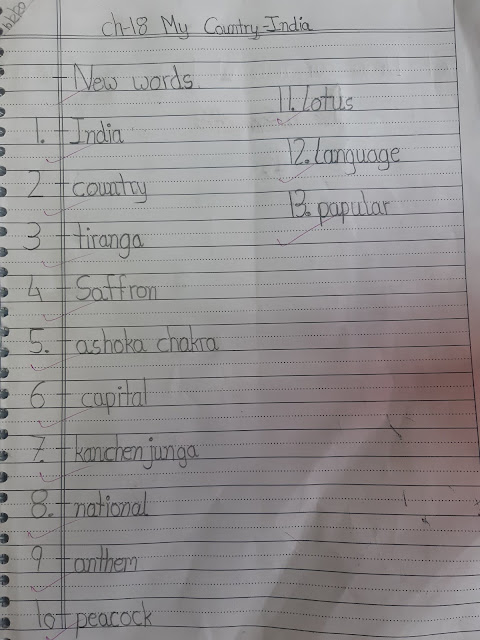 ch-18 My Country-India
New words
1. India
2 country
3 tiranga
4 Saffron
5. ashoka chakra
6 capital
7. kanchenjunga
8. national
9 anthem
10 peacock
11. lotus
12. language
13. papular